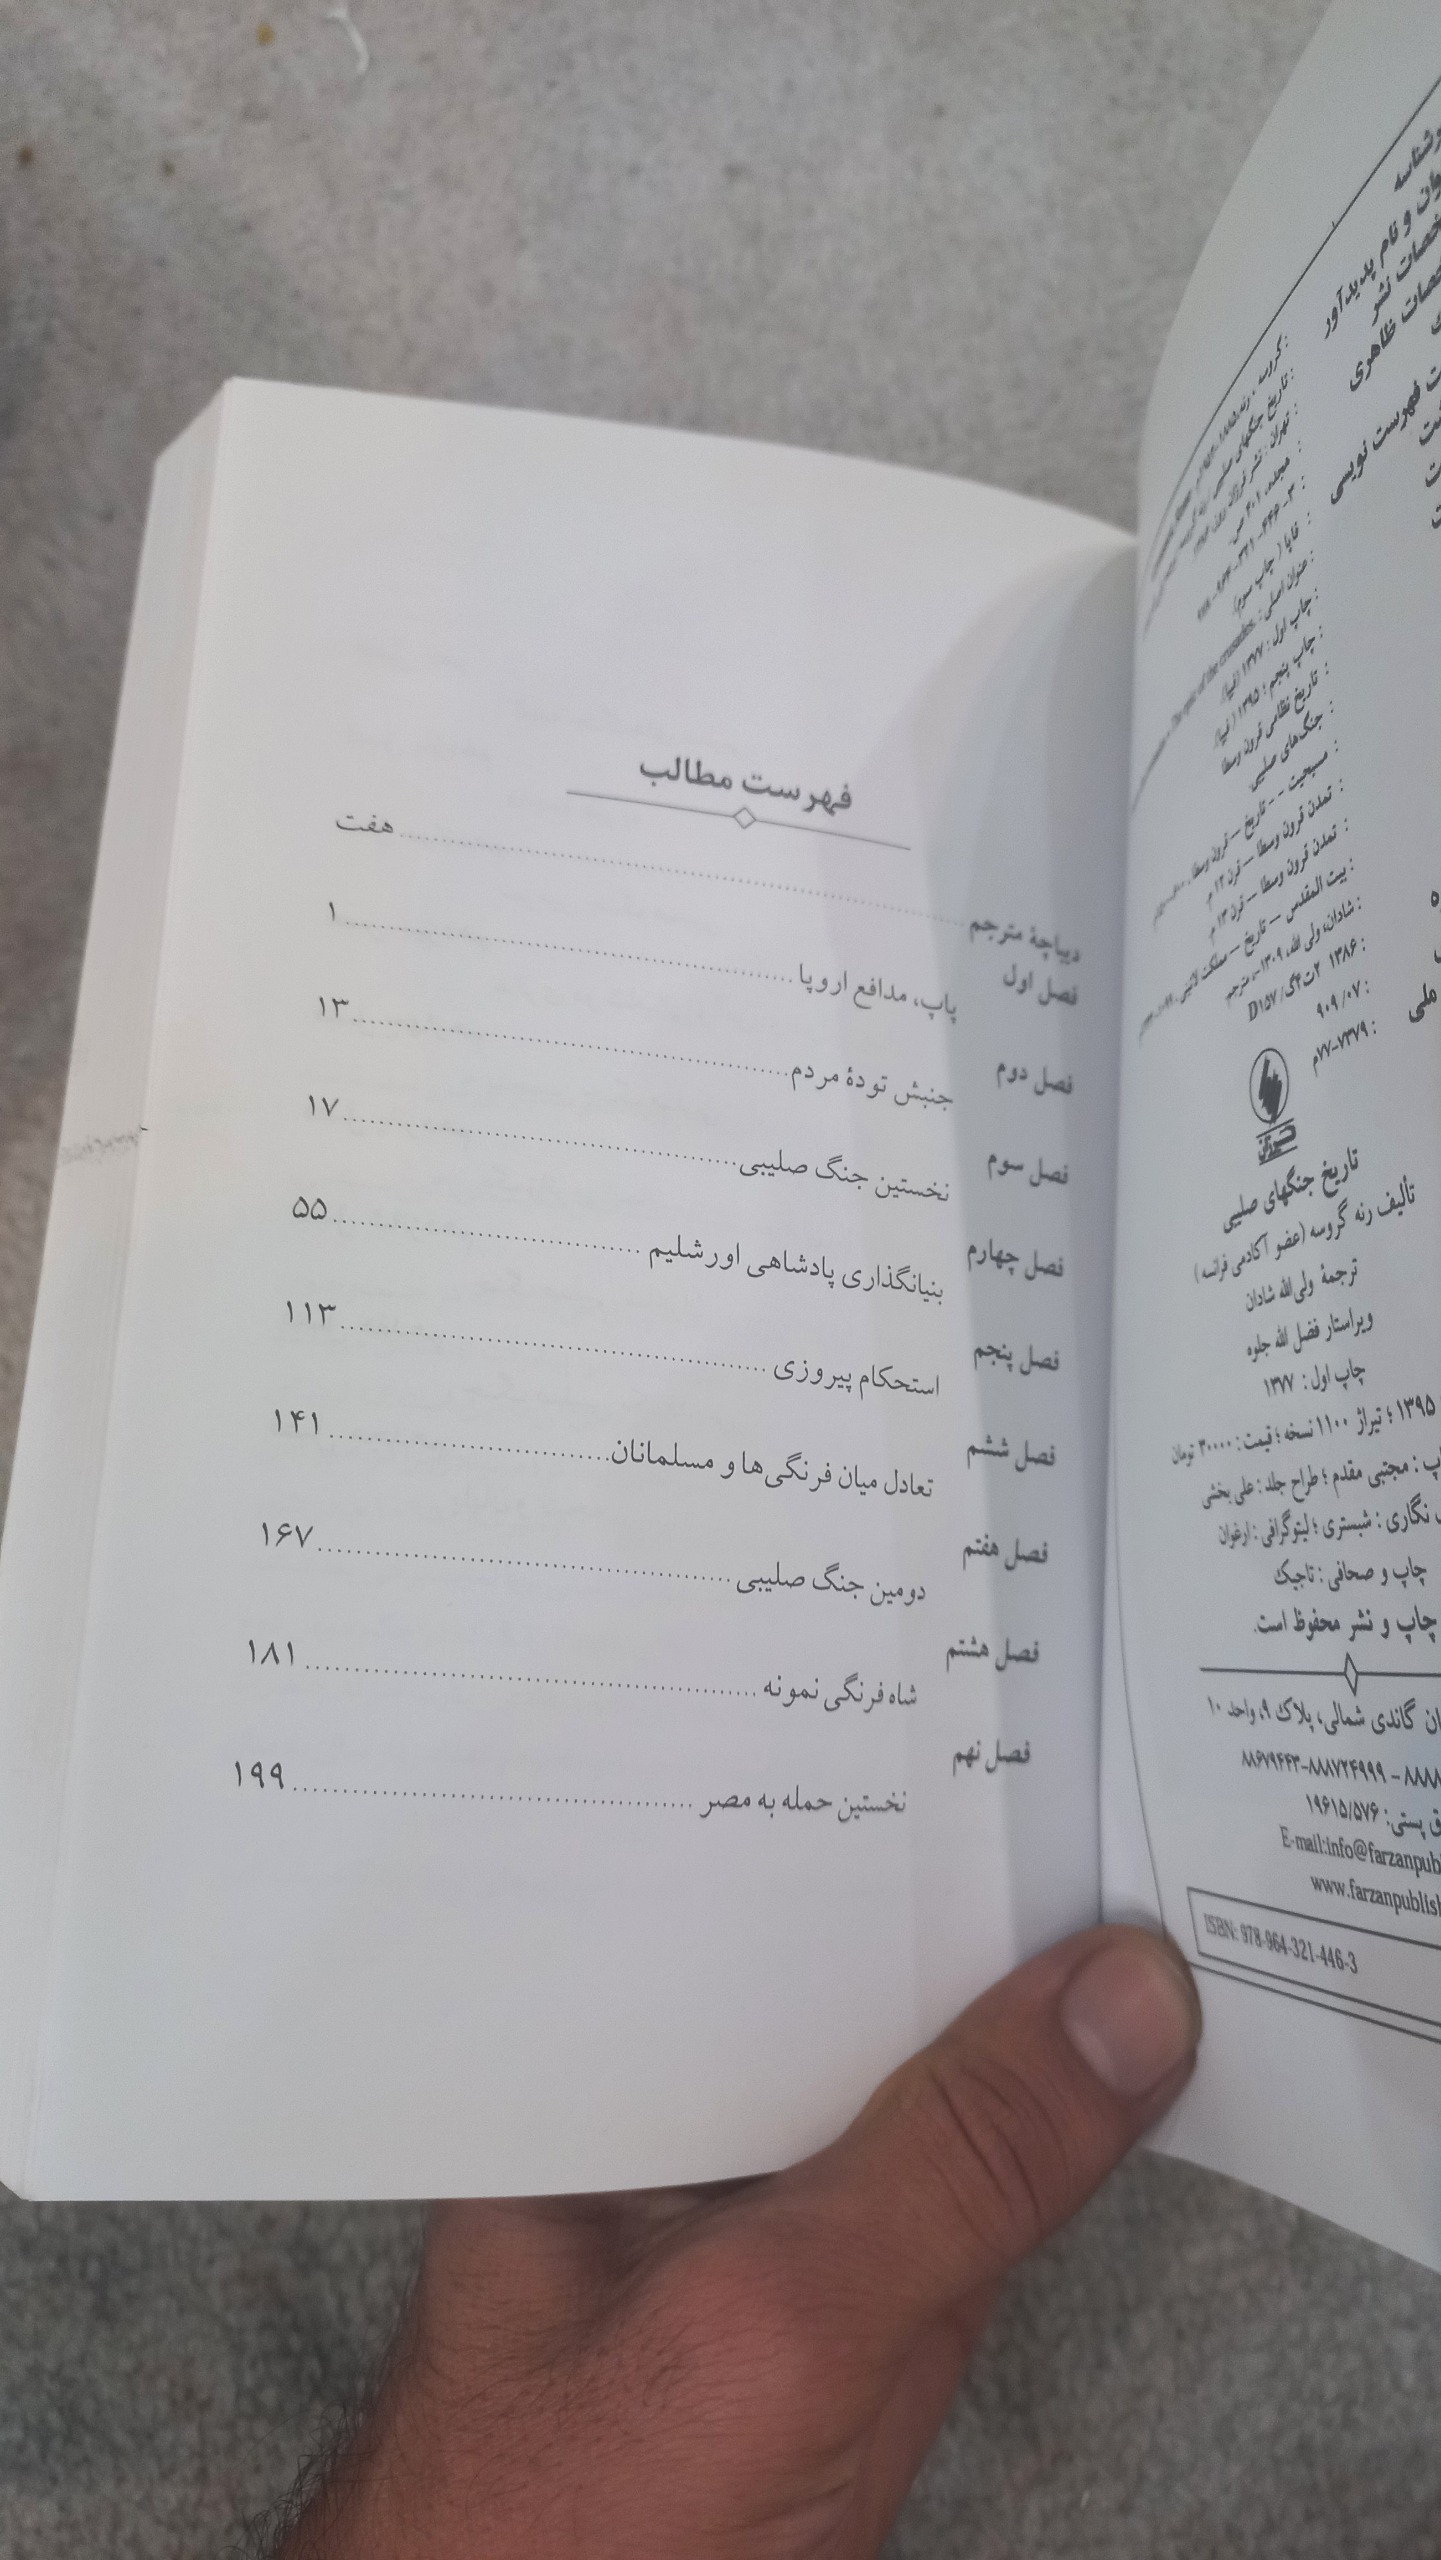 فهرست مطالب
دیباچهٔ مترجم ........ هفت
فصل اول
پاپ، مدافع اروپا ........ ۱
فصل دوم
جنبش تودهٔ مردم ........ ۱۳
فصل سوم
نخستین جنگ صلیبی ........ ۱۷
فصل چهارم
بنیانگذاری پادشاهی اورشلیم ........ ۵۵
فصل پنجم
استحکام پیروزی ........ ۱۱۳
فصل ششم
تعادل میان فرنگی‌ها و مسلمانان ........ ۱۴۱
فصل هفتم
دومین جنگ صلیبی ........ ۱۶۷
فصل هشتم
شاه فرنگی نمونه ........ ۱۸۱
فصل نهم
نخستین حمله به مصر ........ ۱۹۹
نام پدیدآور
نشر
ظاهری
فهرست نویسی
ملی
: گروسه، رنه
: تاریخ جنگهای صلیبی
: تهران: نشر فرزان روز
: مجلد، ۴۰۱ ص.
: فاپا (چاپ سوم)
: عنوان اصلی: The epic of the crusades.
: چاپ اول: ۱۳۷۷ (فیپا).
: چاپ پنجم: ۱۳۹۵ (فیپا).
: تاریخ نظامی قرون وسطا
: جنگ‌های صلیبی.
: مسیحیت -- تاریخ -- قرون وسطا
: تمدن قرون وسطا -- قرن ۱۲ م
: تمدن قرون وسطا -- قرن ۱۳ م
: بیت المقدس -- تاریخ -- مملکت لاتینی
: شادان، ولی الله، ۱۳۰۹-، مترجم
: ۱۳۸۶ ۲ت۴گ/ D۱۵۷
: ۹۰۹/۰۷
: ۷۷-۷۳۷۹م
تاریخ جنگهای صلیبی
تألیف رنه گروسه (عضو آکادمی فرانسه)
ترجمهٔ ولی‌الله شادان
ویراستار فضل الله جلوه
چاپ اول: ۱۳۷۷
۱۳۹۵؛ تیراژ ۱۱۰۰ نسخه؛ قیمت: ۳۰۰۰۰ تومان
: مجتبی مقدم؛ طراح جلد: علی بخشی
نگاری: شبستری؛ لیتوگرافی: ارغوان
چاپ و صحافی: تاجیک
چاپ و نشر محفوظ است.
گاندی شمالی، پلاک ۹، واحد ۱۰
۸۸۷۲۴۹۹۹-۸۸۶۷۹۴۴۳
پستی: ۱۹۶۱۵/۵۷۶
E-mail:info@farzanpubl
www.farzanpublish
ISBN: 978-964-321-446-3